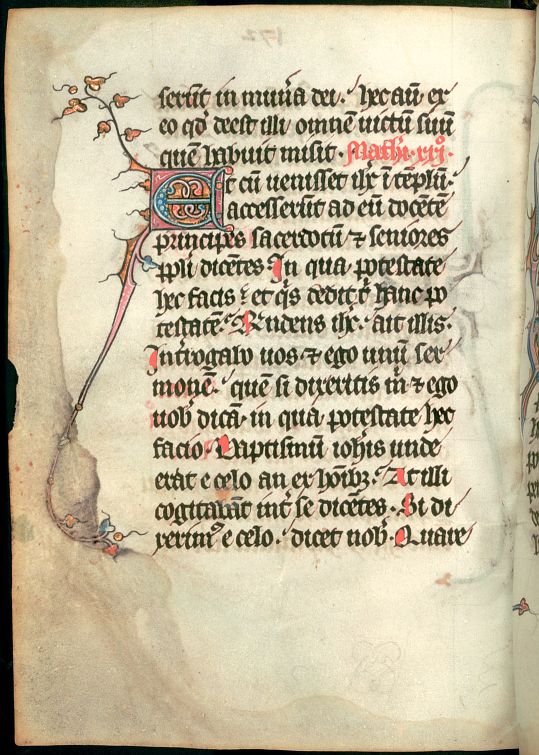 serūt in mun̄a dei. hec aū ex
eo qđ deest illi omnē uictū suū
quē habuit misit. Mathi. xxi.
Et cū uenisset ihc̄ ī tēplū.
accesserūt ad eū docētē
principes sacerdotū ⁊ seniores
ppl̄i dicētes. In qua potestate
hec facis? et qͥs dedit tͥ hanc po
testatē. Rndens ihc̄. ait illis.
Intrrogabo uos ⁊ ego unū ser
monē. quē si dixeritis m̄ ⁊ ego
uob̄ dicā. in qua potestate hec
facio. Baptismū ioh̄is unde
erat e celo an ex hoīb3. At illi
cogitabāt int̄ se dicētes. Si di
xerimꝰ e celo. dicet nob̄. Quare